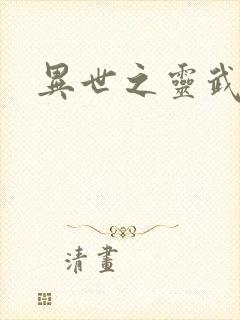 異世之靈武
清畫